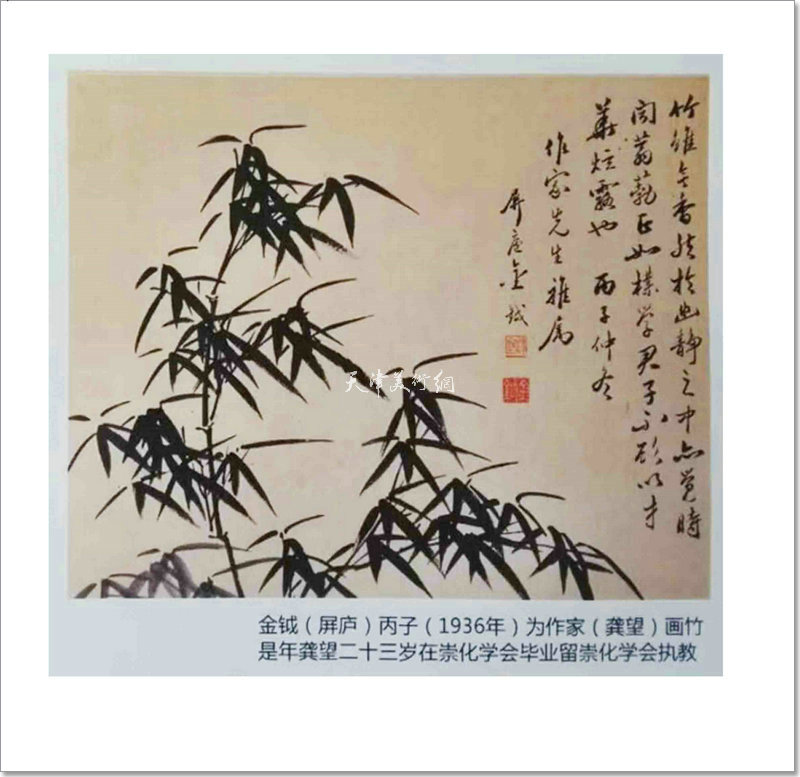 竹雖無香然於幽靜之中亦覺時
聞蓊薆正如樸學君子不欲以才
華炫露也 丙子仲冬
作家先生雅属
屏廬金鉞
天津美術網
金钺（屏庐）丙子（1936年）为作家（龚望）画竹
是年龚望二十三岁在崇化学会毕业留崇化学会执教